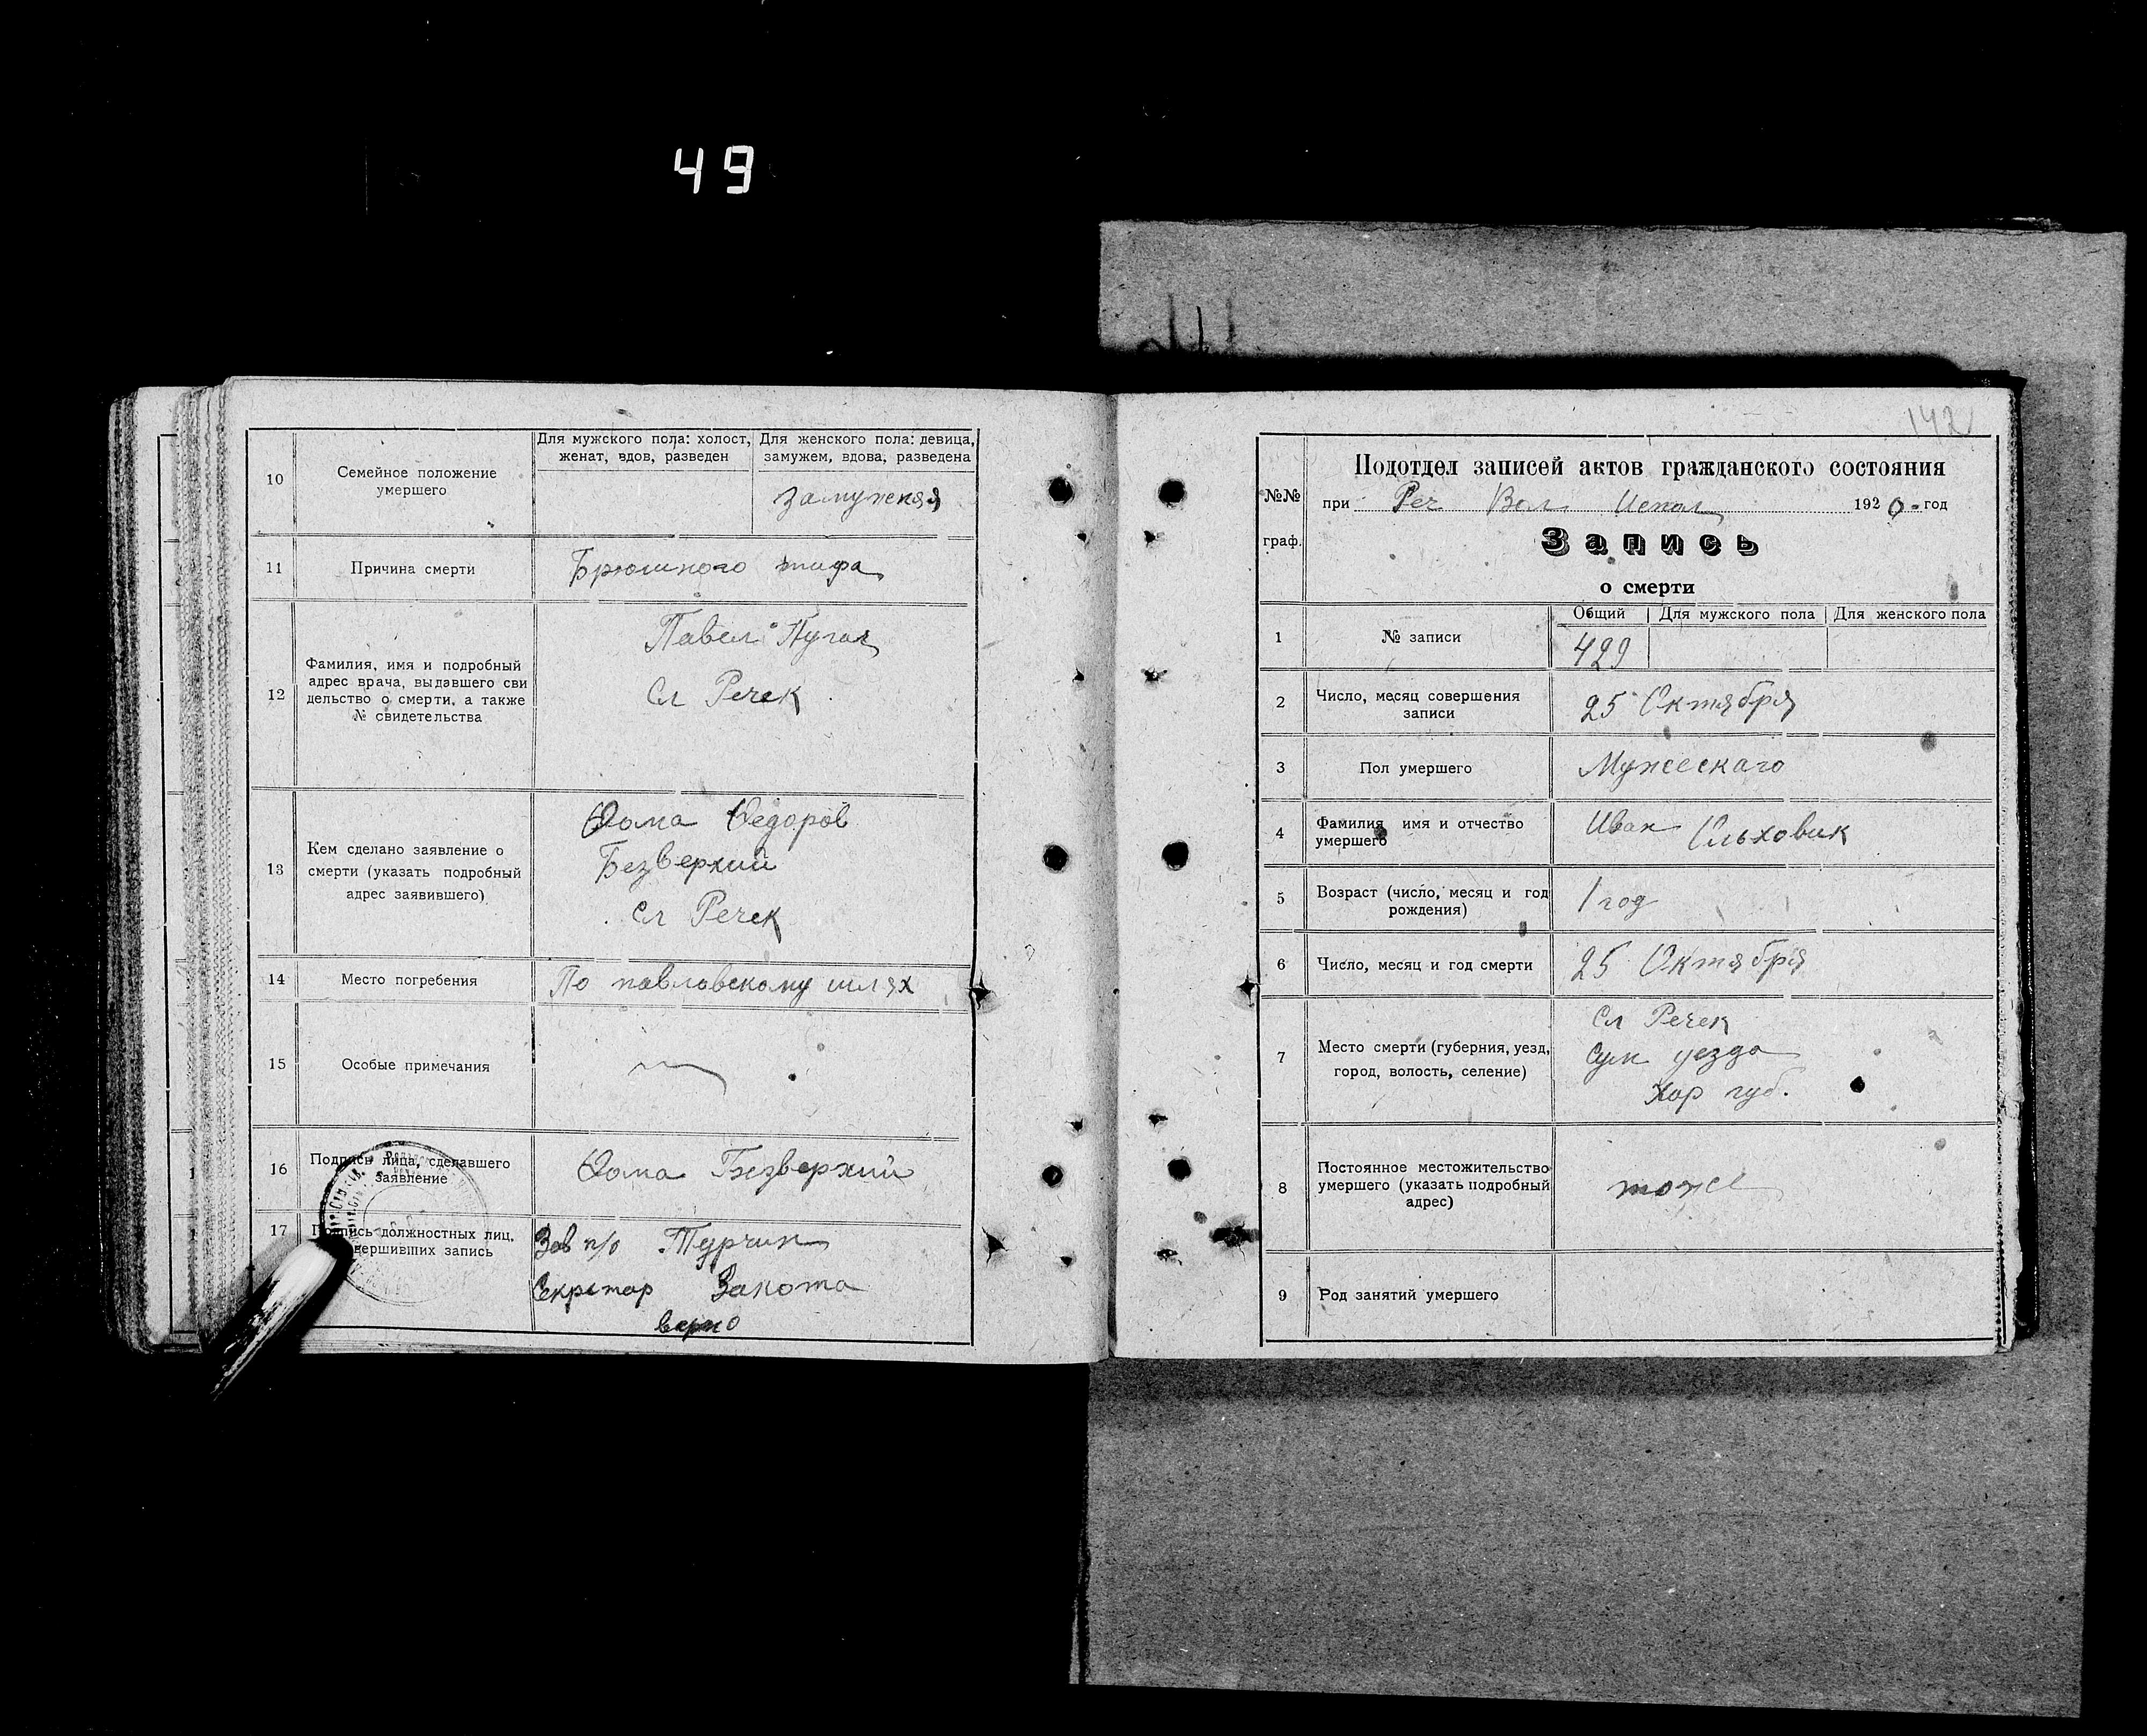 49
10
Семейное положение
умершего
Для мужского пола: холост,
женат, вдов, разведен
Для женского пола: девица,
замужем, вдова, разведена
замужняя
11
Причина смерти
Брюшного тифа
12
Фамилия, имя и подробный
адрес врача, выдавшего сви
дельство о смерти, а также
№ свидетельства
Павел Пугач
Сл Речек
13
Кем сделано заявление о
смерти (указать подробный
адрес заявившего)
Фома Федоров
Безверхий
Сл Речек
14
Место погребения
По павловскому шлях
15
Особые примечания
16
Подпись лица, сделавшего
заявление
Фома Безверхий
17
Подпись должностных лиц,
вершивших запись
Зав п/о Турчин
Секретар Закота
верно
142
№№
граф.
Подотдел записей актов гражданского состояния
при Реч Вол Испол 1920 год
Запись
о смерти
1
№ записи
Общий
Для мужского пола
Для женского пола
429
2
Число, месяц совершения
записи
25 Октября
3
Пол умершего
Мужескаго
4
Фамилия имя и отчество
умершего
Иван Ольховик
5
Возраст (число, месяц и год
рождения)
1 год
6
Число, месяц и год смерти
25 Октября
7
Место смерти (губерния, уезд,
город, волость, селение)
Сл Речек
Сум уезда
Хар губ.
8
Постоянное местожительство
умершего (указать подробный
адрес)
тоже
9
Род занятий умершего